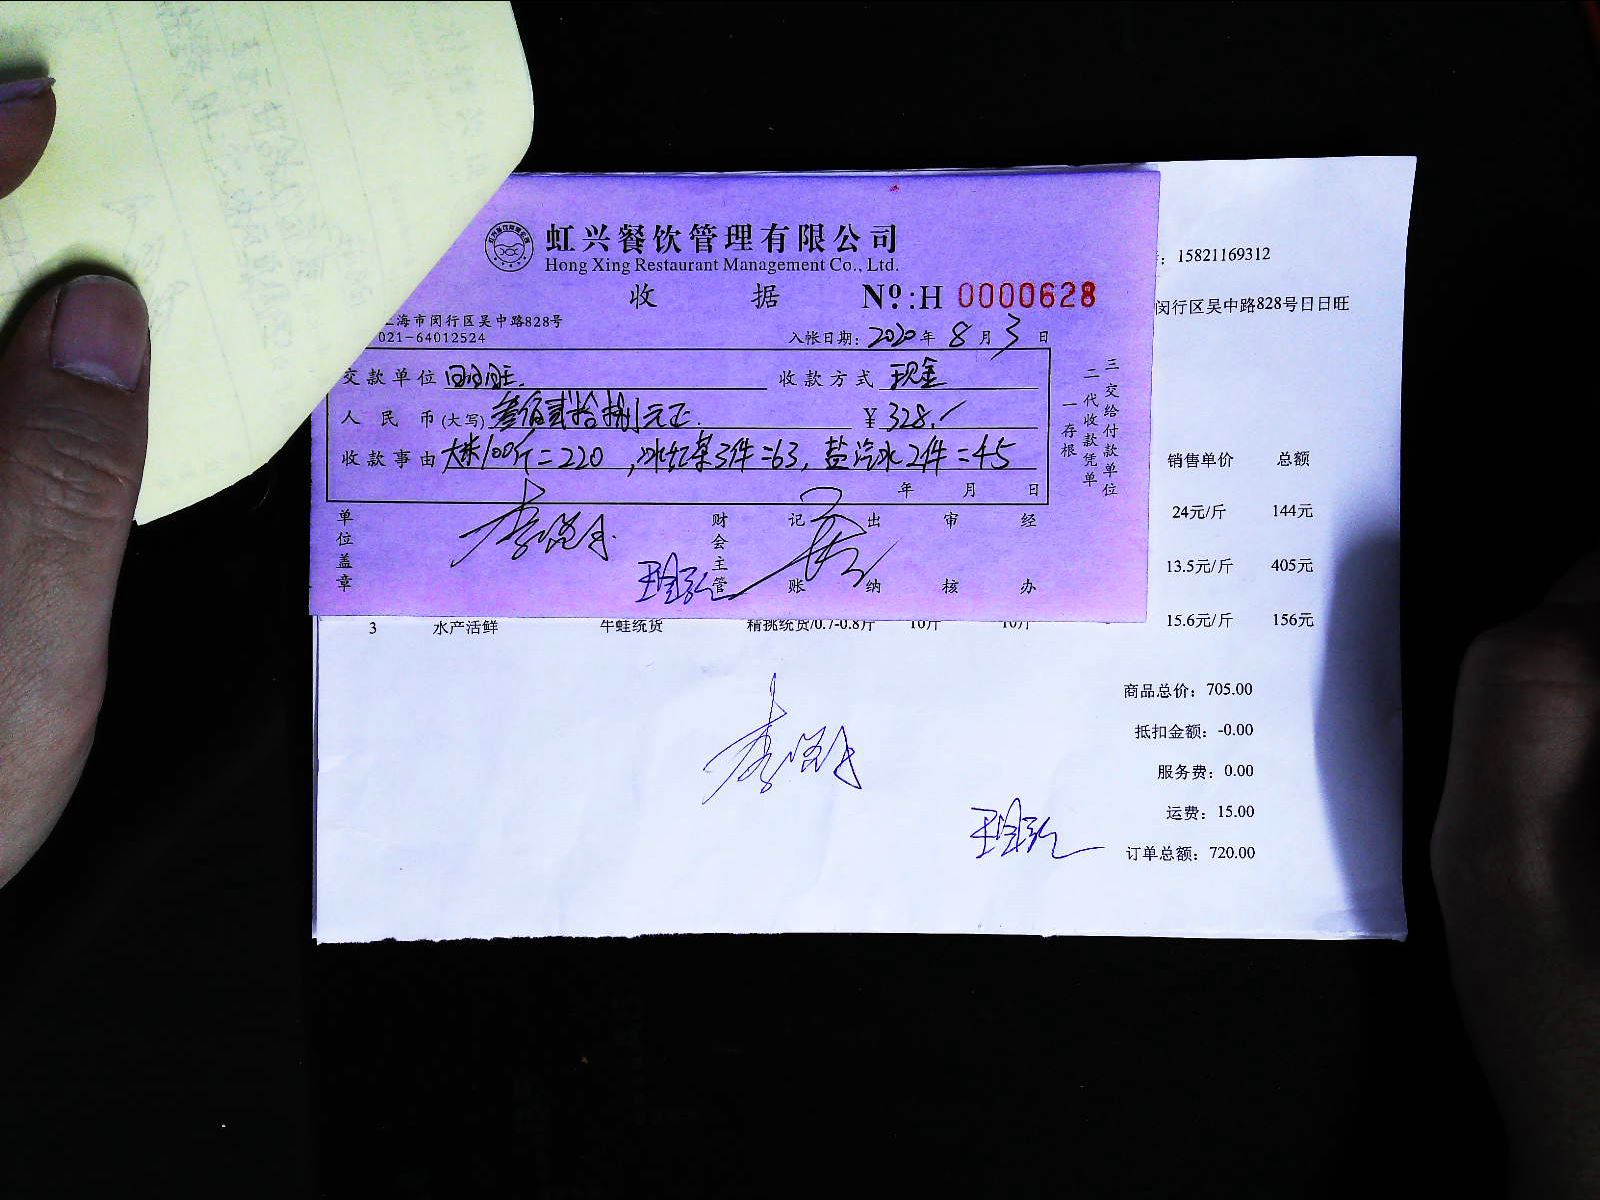 虹兴餐饮管理有限公司
Hong Xing Restaurant Management Co., Ltd.
收 据 Nº:H 0000628
上海市闵行区吴中路828号
021-64012524
入帐日期: 2020 年 8 月 3 日
交款单位 日日旺. 收款方式 现金
人民币(大写) 叁佰贰拾捌元正. ¥ 328./
收款事由 大米100斤=220, 冰红茶3件=63, 盐汽水2件=45
年 月 日
三交给付款单位
二代收款凭单
一存根
单位盖章 财会主管 记账 出纳 审核 经办
: 15821169312
闵行区吴中路828号日日旺
销售单价 总额
24元/斤 144元
13.5元/斤 405元
3 水产活鲜 牛蛙统货 精挑统货/0.7-0.8斤 10斤 10斤 15.6元/斤 156元
商品总价: 705.00
抵扣金额: -0.00
服务费: 0.00
运费: 15.00
订单总额: 720.00